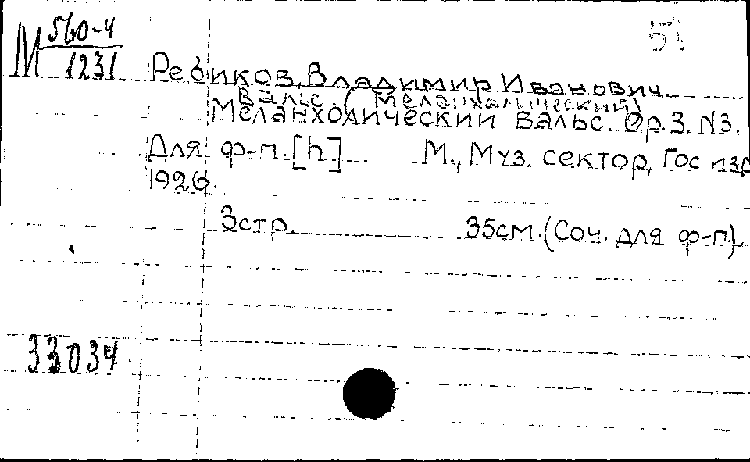 М 560-4
1231
51
Ребиков, Владимир Иванович
Вальс (Меланхолический)
Меланхолический вальс. Op.3. N3.
Для ф-п. [h] М., Муз. сектор, Гос изд
1926.
3стр. 35см. (Соч. для ф-п).
33034